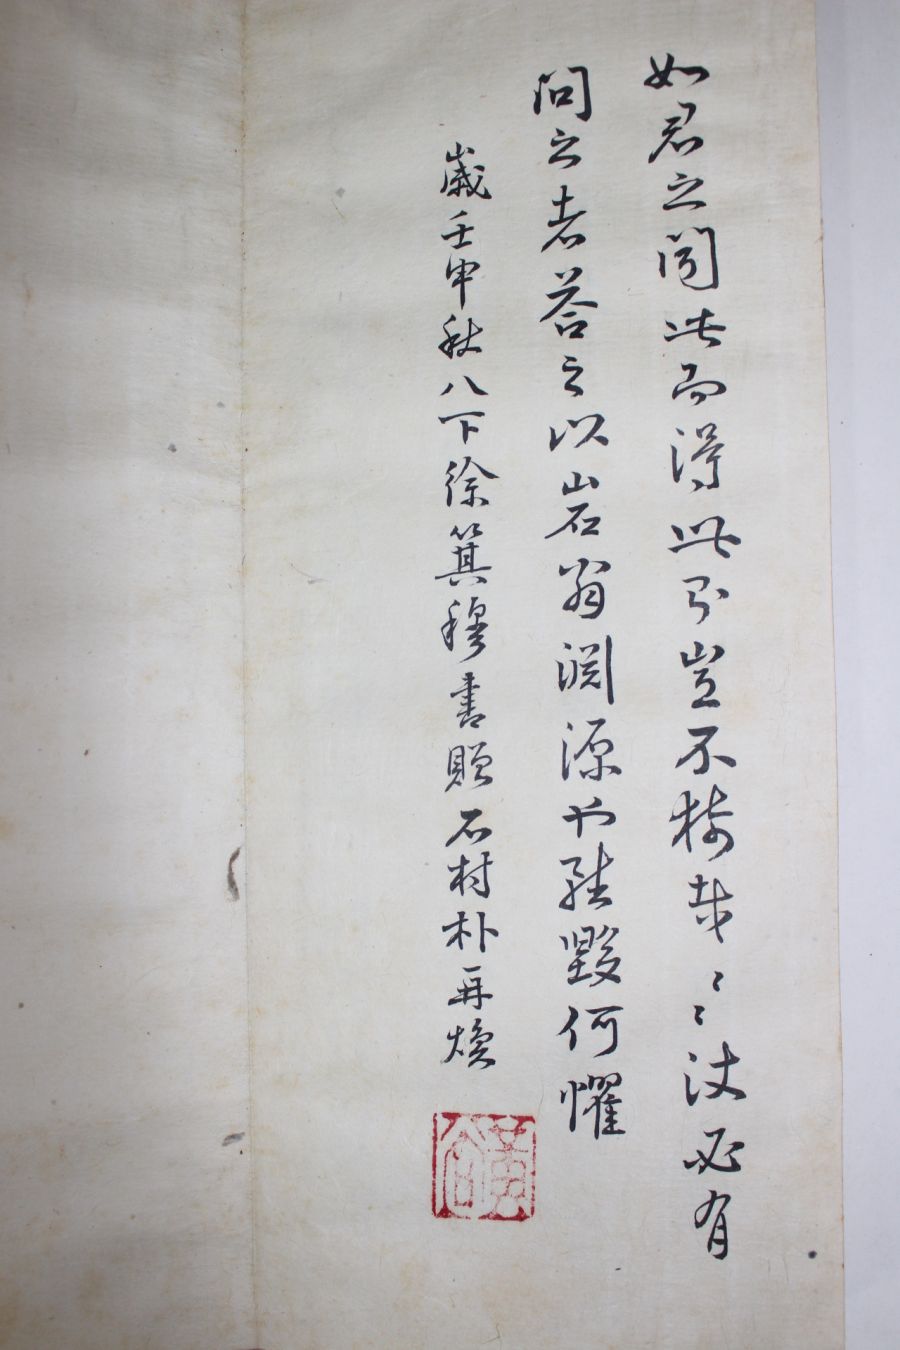 如君之閒此而得此号豈不@哉〻〻汝必有
問之者答之以岩翁淵源也雖毀何懼
歲壬申秋八下徐箕穆書贈石村朴再煥